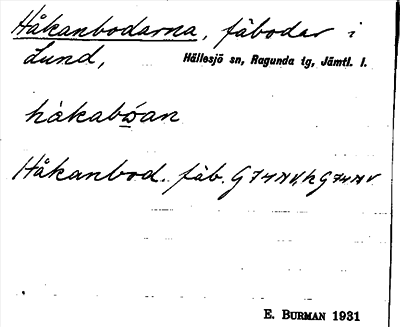 Håkanbodarna, fäbodar i
Lund, Hällesjö sn, Ragunda tg, Jämtl. l.
håkabωan
Håkanbod. fäb. G 74 NV, h G 74 NV
E. BURMAN 1931